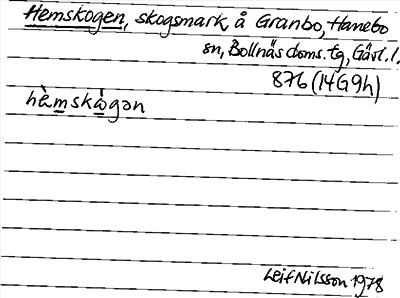 Hemskogen, skogsmark, å Granbo, Hanebo
sn, Bollnäs doms. tg, Gävl. l.
876 (14G9h)
hὲm̲skὼ̲gən
Leif Nilsson 1978